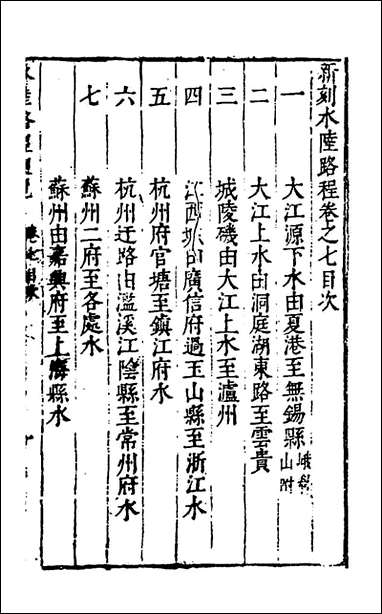 新刻水陸路程卷之七目次
一 大江源下水由夏港至無錫縣 峨
山附
二 大江上水由洞庭湖東路至雲貴
三 城陵磯由大江上水至瀘州
四 江西城由廣信府過玉山縣至浙江水
五 杭州府官塘至鎮江府水
六 杭州迂路由濫溪江陰縣至常州府水
七 蘇州二府至各處水
蘇州由嘉興府至上海縣水
水陸路程